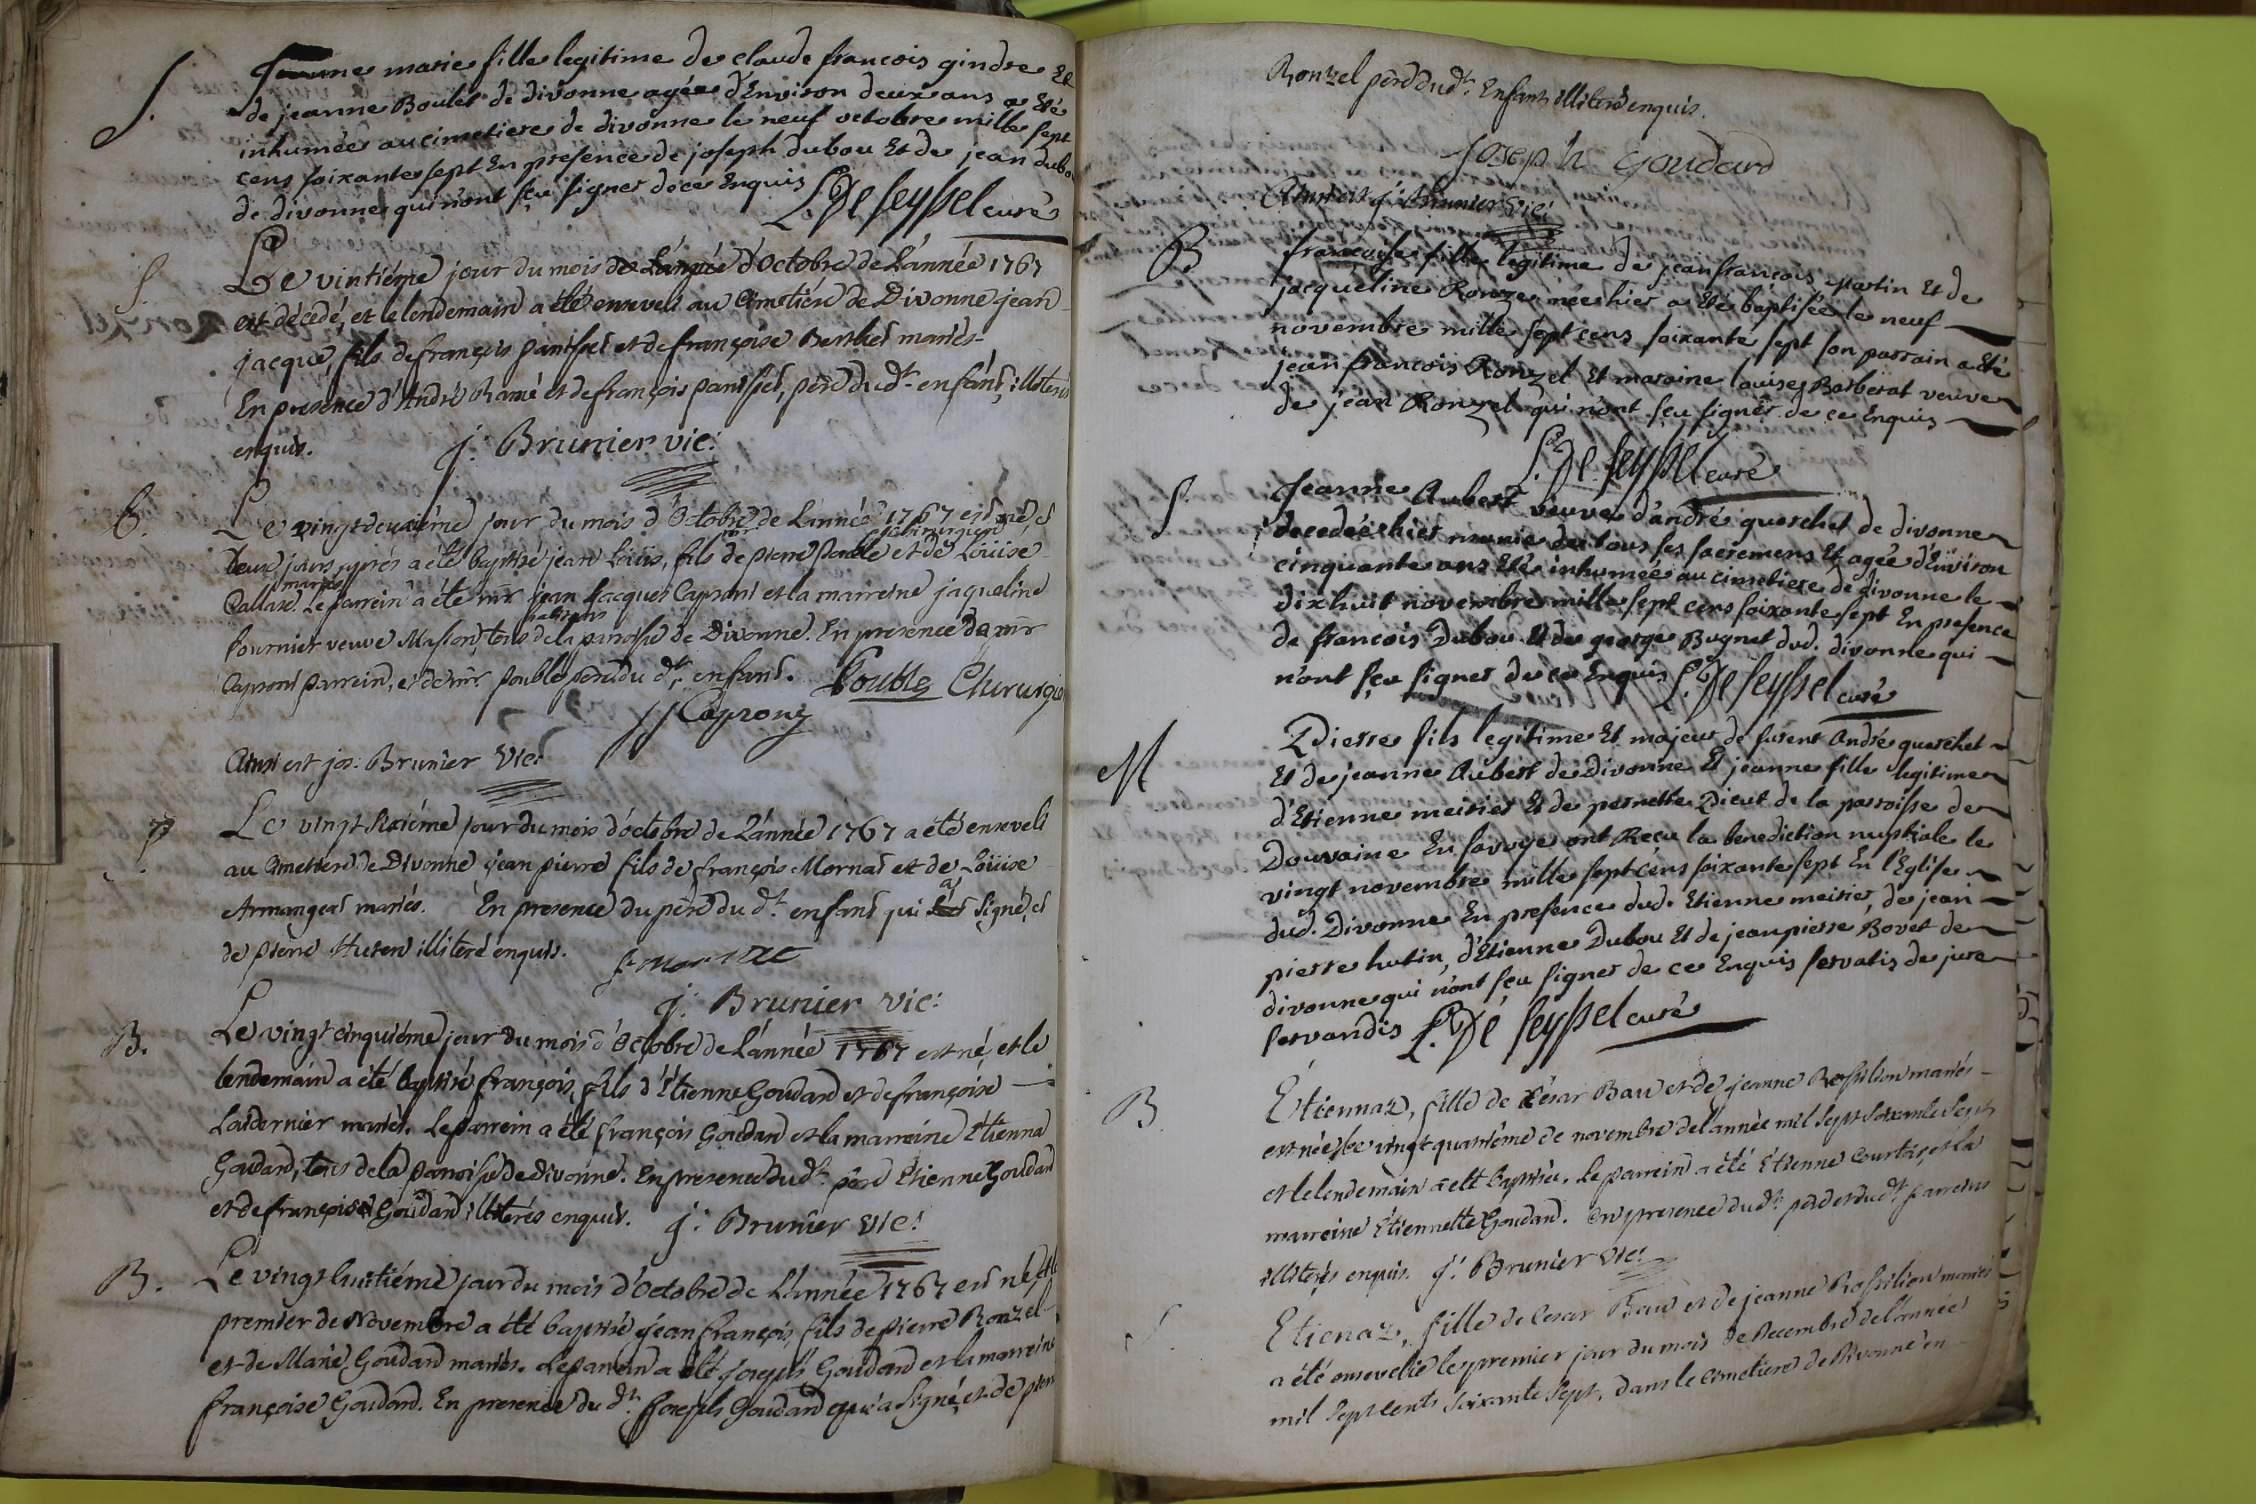 S.
Jeanne marie fille legitime de claude francois gindre Et
de jeanne Boulet de divonne agée d'Environ deux ans a Eté
inhumée au cimetiere de divonne le neuf octobre mille sept
cens soixante sept En presence de joseph dubou Et de jean dubou
de divonne qui n'ont sçu signer de ce Enquis
De seyssel curé
S.
Le vintiéme jour du mois d'Octobre de L'année 1767
est décedé, et le lendemain a été enseveli au Cimetiére de Divonne jean
jacque, fils de françois panisset et de françoise Berthet mariés
En presence d'André Ramé et de françois panisset, pére du dt. enfant, illiterés
enquis.
j: Brunier vic:
B.
Le vingtdeuxiéme jour du mois d'Octobre de L'année 1767 est né, et
deux jours aprés a été baptisé jean Loüis, fils de mr pierre Pouble chirurgien et de Loüise
Callard mariés. Le parrein a été mr. jean jacques Caproni et la marreine jaqueline
fournier veuve Masson, tous habitants de la parroisse de Divonne. En presence de mr
Caproni parrein, et de mr. pouble pére du dt. enfant.
Pouble Chirurgien
JJ Caprony
Ainsi est jos: Brunier Vic:
S.
Le vingt sixiéme jour du mois d'octobre de L'année 1767 a été enseveli
au Cimetiere de Divonne jean pierre fils de françois Mornat et de Loüise
Armangeat mariés. En presence du pére du dt. enfant qui a signé, et
de pierre Huten illiteré enquis.
f mornac
j: Brunier vic:
B.
Le vingt cinquiéme jour du mois d'Octobre de L'année 1767 est né, et le
lendemain a été baptisé françois, fils d'Étienne Goudard et de françoise
Ladernier mariés. Le parrein a été françois Goudard et la marreine Étienna
Goudard, tous de la parroisse de Divonne. En presence du dt. pére Étienne Goudard
et de françois Goudard illiterés enquis.
j: Brunier vic:
B.
Le vingt huitiéme jour du mois d'Octobre de L'année 1767 est né, et le
premier de Novembre a été baptisé jean françois, fils de pierre Ronzel
et de Marie Goudard mariés. Le parrein a été joseph Goudard et la marreine
françoise Goudard. En presence du dt. joseph Goudard qui a signé, et de pierre
Ronzel pére du dt. Enfant, illiteré enquis.
Joseph Goudard
Ainsi est j: Brunier vic:
B
francoise fille legitime de jean françois martin Et de
jacqueline Ronze née hier a Eté baptisée le neuf
novembre mille sept cens soixante sept son parrain a Eté
jean francois Ronzel Et maraine louise Barberat veuve
de jean Ronzel qui n'ont sçu signer de ce Enquis
De seyssel curé
S.
Jeanne Aubert veuve d'andré querchet de divonne
decedée hier munie de tous ses sacremens Et agée d'Environ
cinquante ans Eté inhumée au cimetiere de divonne le
dixhuit novembre mille sept cens soixante sept En presence
de francois Dubou Et de george Bugnet dud. divonne qui
n'ont sçu signer de ce Enquis
De seyssel curé
M
Pierre fils legitime Et majeur de furent André querchet
Et de jeanne Aubert de divonne Et jeanne fille legitime
d'Etienne meirier Et de pernette Dieut de la parroisse de
Douvaine En savoye ont Reçu la benediction nuptiale le
vingt novembre mille sept cens soixante sept En l'Eglise
dud. Divonne En presence dud. Etienne meirier, de jean
pierre hutin, d'Etienne Dubou Et de jean pierre Bovet de
divonne qui n'ont sçu signer de ce Enquis servatis de jure
servandis
De seyssel curé
B
Étiennaz, fille de César Bau et de jeanne Rossilion mariés
est née, le vingt quatriéme de novembre de l'année mil sept soixante sept,
et le lendemain a été baptisée. Le parrein a été Étienne Courtaz, et la
marreine Étiennette Goudard. En presence du dt. pére et du dt parrein
illiterés enquis.
j: Brunier vic:
S
Étienaz, fille de Cesar Bau et de jeanne Rossilion mariés
a été ensevelie le premier jour du mois de Decembre de l'année
mil sept cents soixante sept, dans le cimetiere de Divonne en